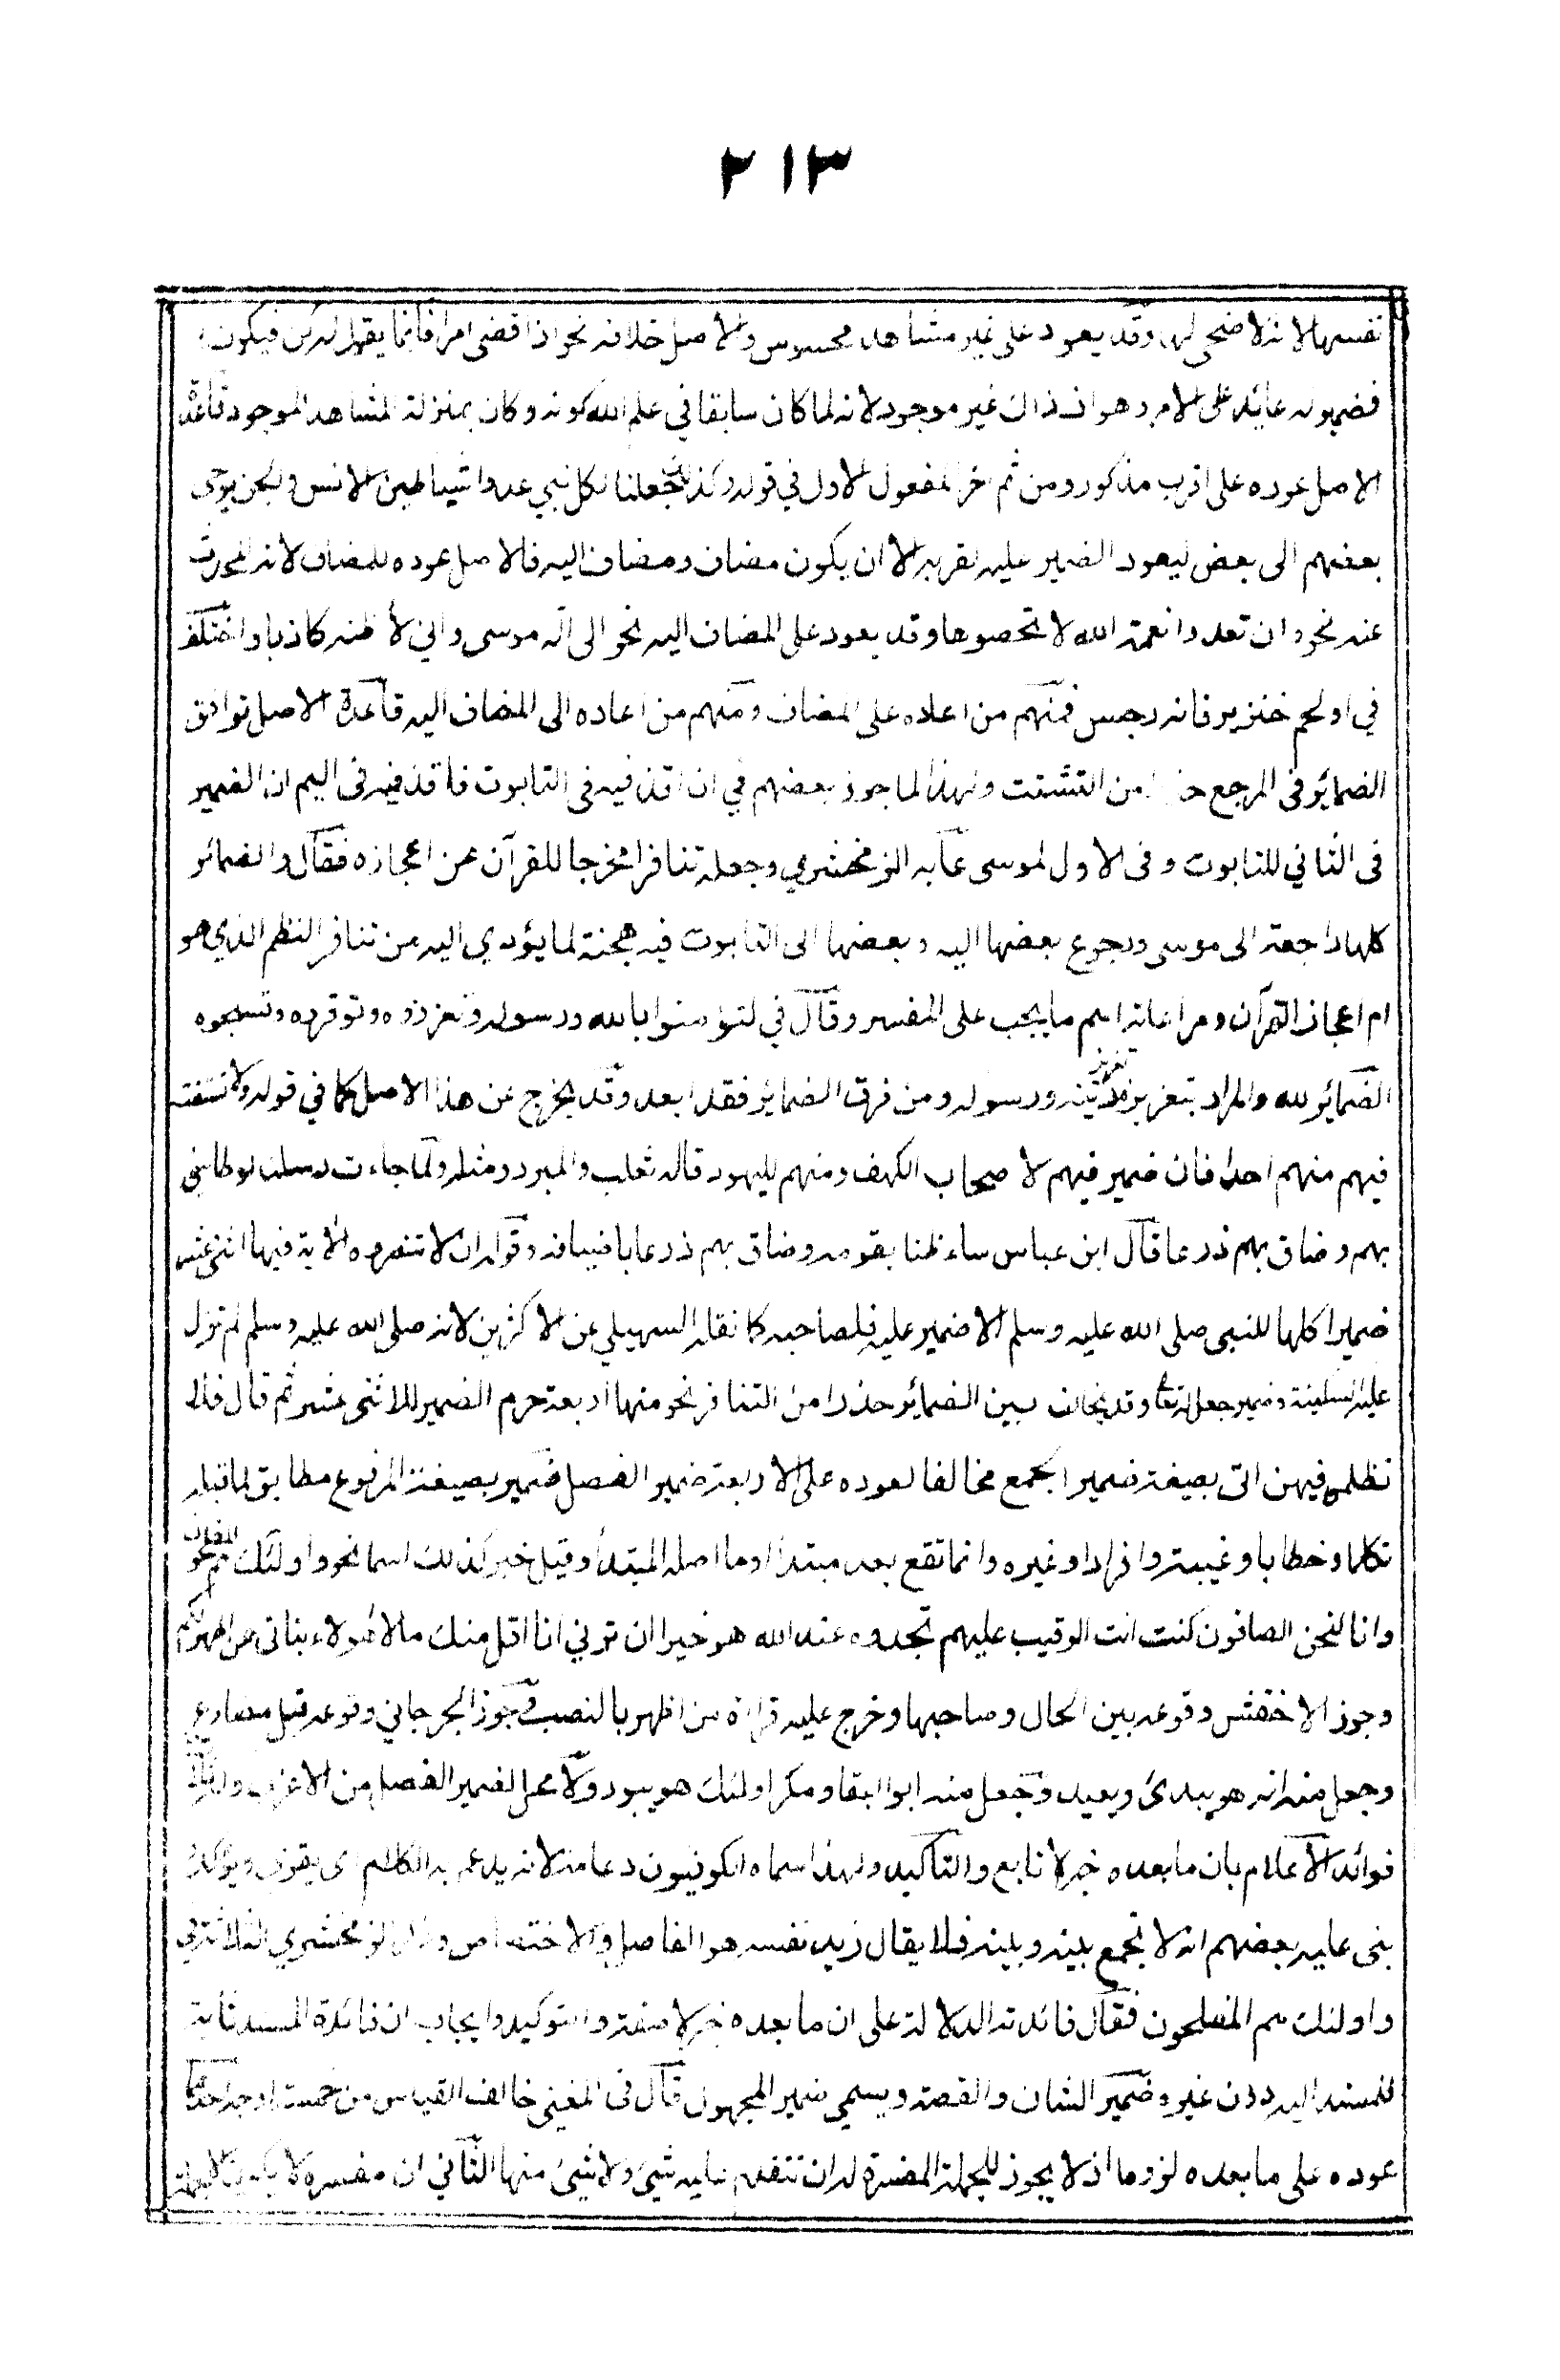 ٢١٣
نفسها لا انه لا ضحى لها وقد يعود على غير مشاهد محسوس والاصل خلافه نحو اذا قضى امرا فانما يقول له كن فيكون
فضمير له عائد على الامر وهو اذ ذاك غير موجود لانه لما كان سابقا في علم الله كونه وكان بمنزلة المشاهد الموجود قاعدة
الاصل عوده على اقرب مذكور ومن ثم اخر المفعول الاول في قوله وكذلك جعلنا لكل نبي عدوا شياطين الانس والجن يوحى
بعضهم الى بعض ليعود الضمير عليه لقربه الا ان يكون مضاف ومضاف اليه فالاصل عوده للمضاف لانه المحدث
عنه نحو وان تعدوا نعمة الله لا تحصوها وقد يعود على المضاف اليه نحو الى اله موسى واني لأظنه كاذبا واختلف
في او لحم خنزير فانه رجس فمنهم من اعاده على المضاف ومنهم من اعاده الى المضاف اليه قاعدة الاصل توافق
الضمائر فى المرجع من التشتت ولهذا لما جوز بعضهم في ان اقذفيه فى التابوت فاقذفيه فى اليم ان الضمير
فى الثاني للتابوت وفى الاول لموسى عابه الزمخشري وجعله تنافرا مخرجا للقرآن عن اعجازه فقال والضمائر
كلها راجعة الى موسى ورجوع بعضها اليه وبعضها الى التابوت فيه هجنة لما يؤدي اليه من تنافر النظم الذي هو
ام اعجاز القرآن ومراعاته اهم ما يجب على المفسر وقال في لتؤمنوا بالله ورسوله وتعزروه وتوقروه وتسبحوه
الضمائر لله والمراد بتعزيره تعزيز دينه ورسوله ومن فرق الضمائر فقد ابعد وقد يخرج عن هذا الاصل كما في قوله ولا تستفت
فيهم منهم احدا فان ضمير فيهم لاصحاب الكهف ومنهم لليهود قاله ثعلب والمبرد ومثله ولما جاءت رسلنا لوطا سئ
بهم وضاق بهم ذرعا قال ابن عباس ساء ظنا بقومه وضاق بهم ذرعا باضيافه وقوله ان لا تنصروه الاية فيها اثنى عشر
ضميرا كلها للنبى صلى الله عليه وسلم الا ضمير عليه فلصاحبه كما نقله السهيلي عن الاكثرين لانه صلى الله عليه وسلم لم تزل
عليه السكينة وضمير جعل له تعا وقد يخالف بين الضمائر حذرا من التنافر نحو منها اربعة حرم الضمير للاثنى عشر ثم قال فلا
تظلموا فيهن اتى بصيغة ضمير الجمع مخالفا لعوده على الاربعة ضمير الفصل ضمير بصيغة المرفوع مطابق لما قبله
تكلما وخطابا وغيبة وافرادا وغيره وانما تقع بعد مبتدا او ما اصله المبتدأ وقيل خبر كذلك اسما نحو واولئك هم المفلحون
وانا لنحن الصافون كنت انت الرقيب عليهم تجدوه عند الله هو خيرا ان ترني انا اقل منك مالا هولاء بناتى هن اطهر لكم
وجوز الاخفش وقوعه بين الحال وصاحبها وخرج عليه قراءة من اظهر بالنصب وجوز الجرجاني وقوعه قبل مضارع
وجعل منه انه هو يبدئ ويعيد وجعل منه ابو البقا ومكر اولئك هو يبور ولا محل لضمير الفصل من الاعراب وله ثلثة
فوائد الاعلام بان ما بعده خبر لا تابع والتاكيد ولهذا سماه الكوفيون دعامة لانه يدعم به الكلام اى يقوى ويؤكد
بنى عليه بعضهم انه لا يجمع بينه وبينه فلا يقال زيد نفسه هو الفاضل والاختصاص وذكر الزمخشري الثلاثة في
واولئك هم المفلحون فقال فائدته الدلالة على ان ما بعده خبر لا صفة والتوكيد وايجاب ان فائدة المسند ثابتة
للمسند اليه دون غيره ضمير الشان والقصة ويسمى ضمير المجهول قال فى المغني خالف القياس من خمسة اوجه احدها
عوده على ما بعده لزوما اذ لا يجوز للجملة المفسرة له ان تتقدم عليه شئ ولا شئ منها الثاني ان مفسره لا يكون الا جملة